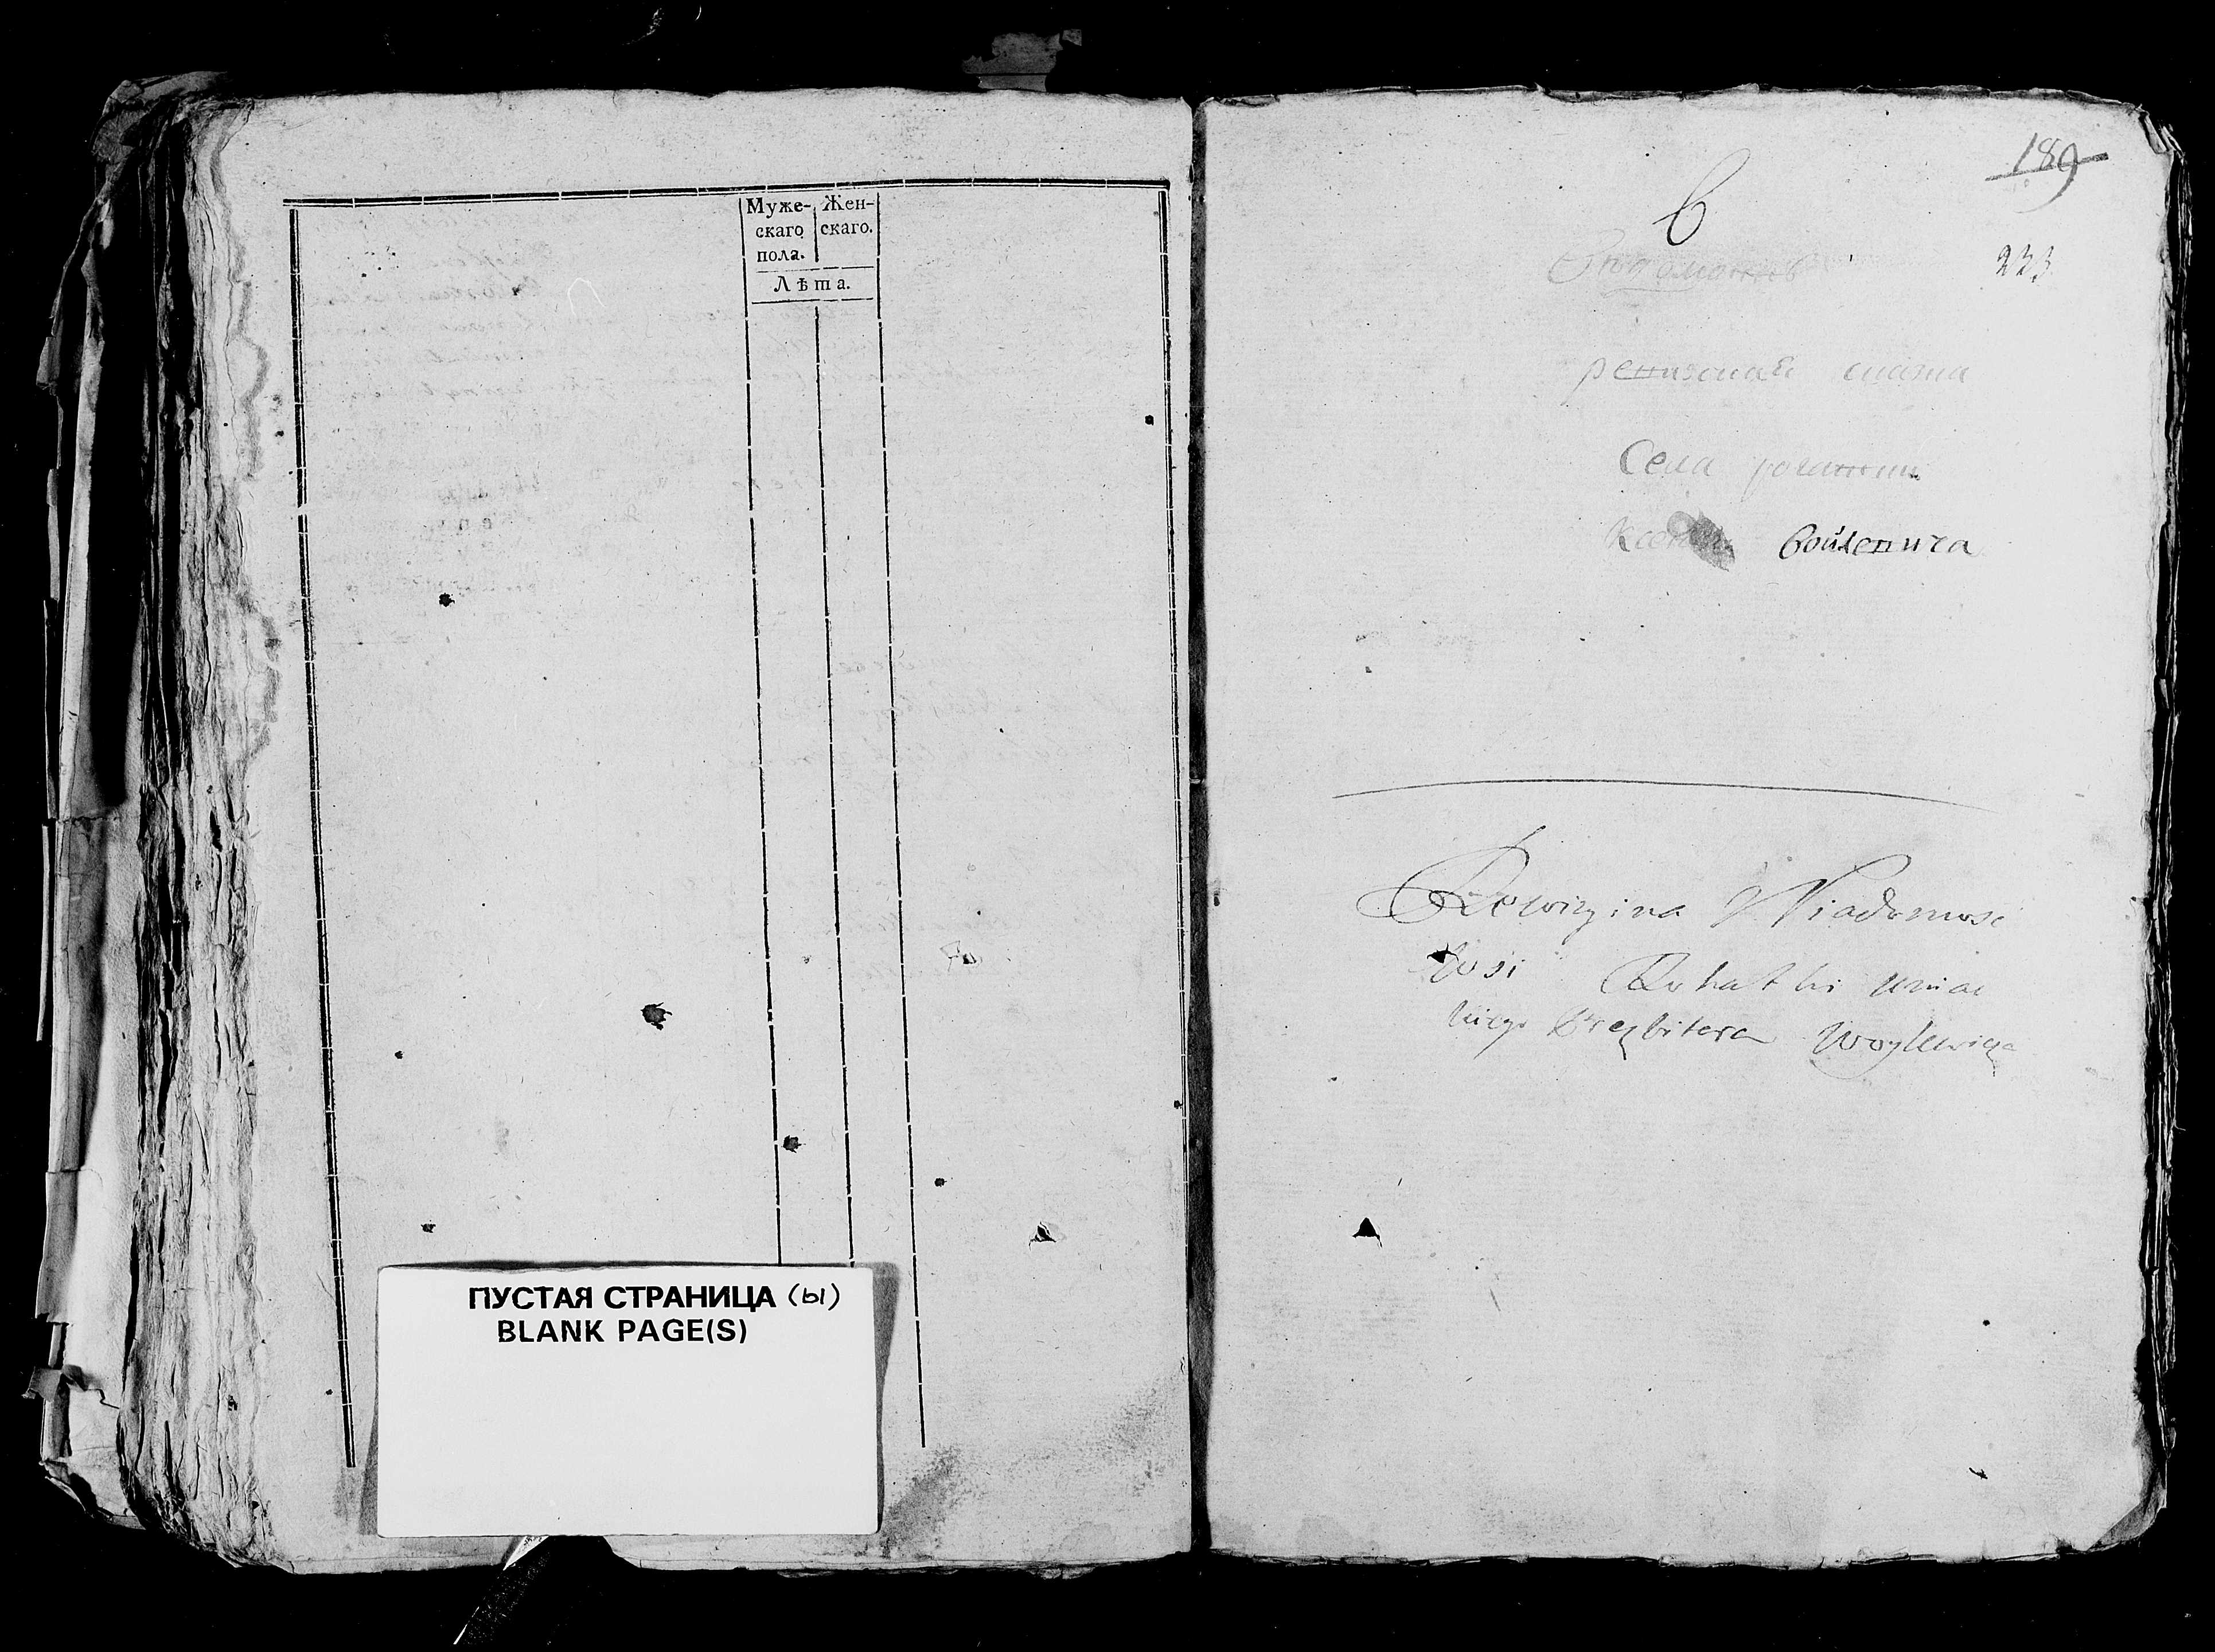 Муже-
скаго
пола.
Жен-
скаго.
Лѣта.
ПУСТАЯ СТРАНИЦА (ы)
BLANK PAGE(S)
189
6
223
ревизская сказка
Села
войлевича
Rewizyina Wiadomosc
Wsi Rohatki uniac
kiego Prezbitera Woylewicza